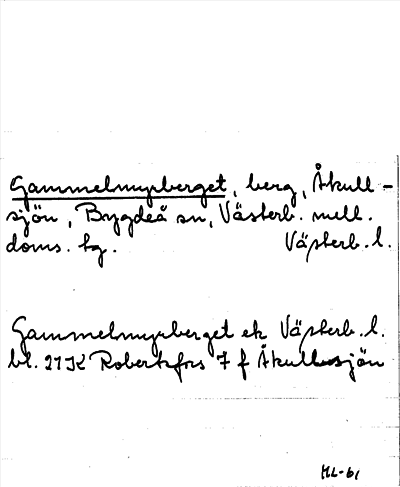 Gammelmyrberget, berg, Åkull-
sjön, Bygdeå sn, Västerb. mell.
doms. tg. Västerb. l.
Gammelmyrberget ek Västerb. l.
bl. 21K Robertsfors 7 f Åkullsjön
ML-61